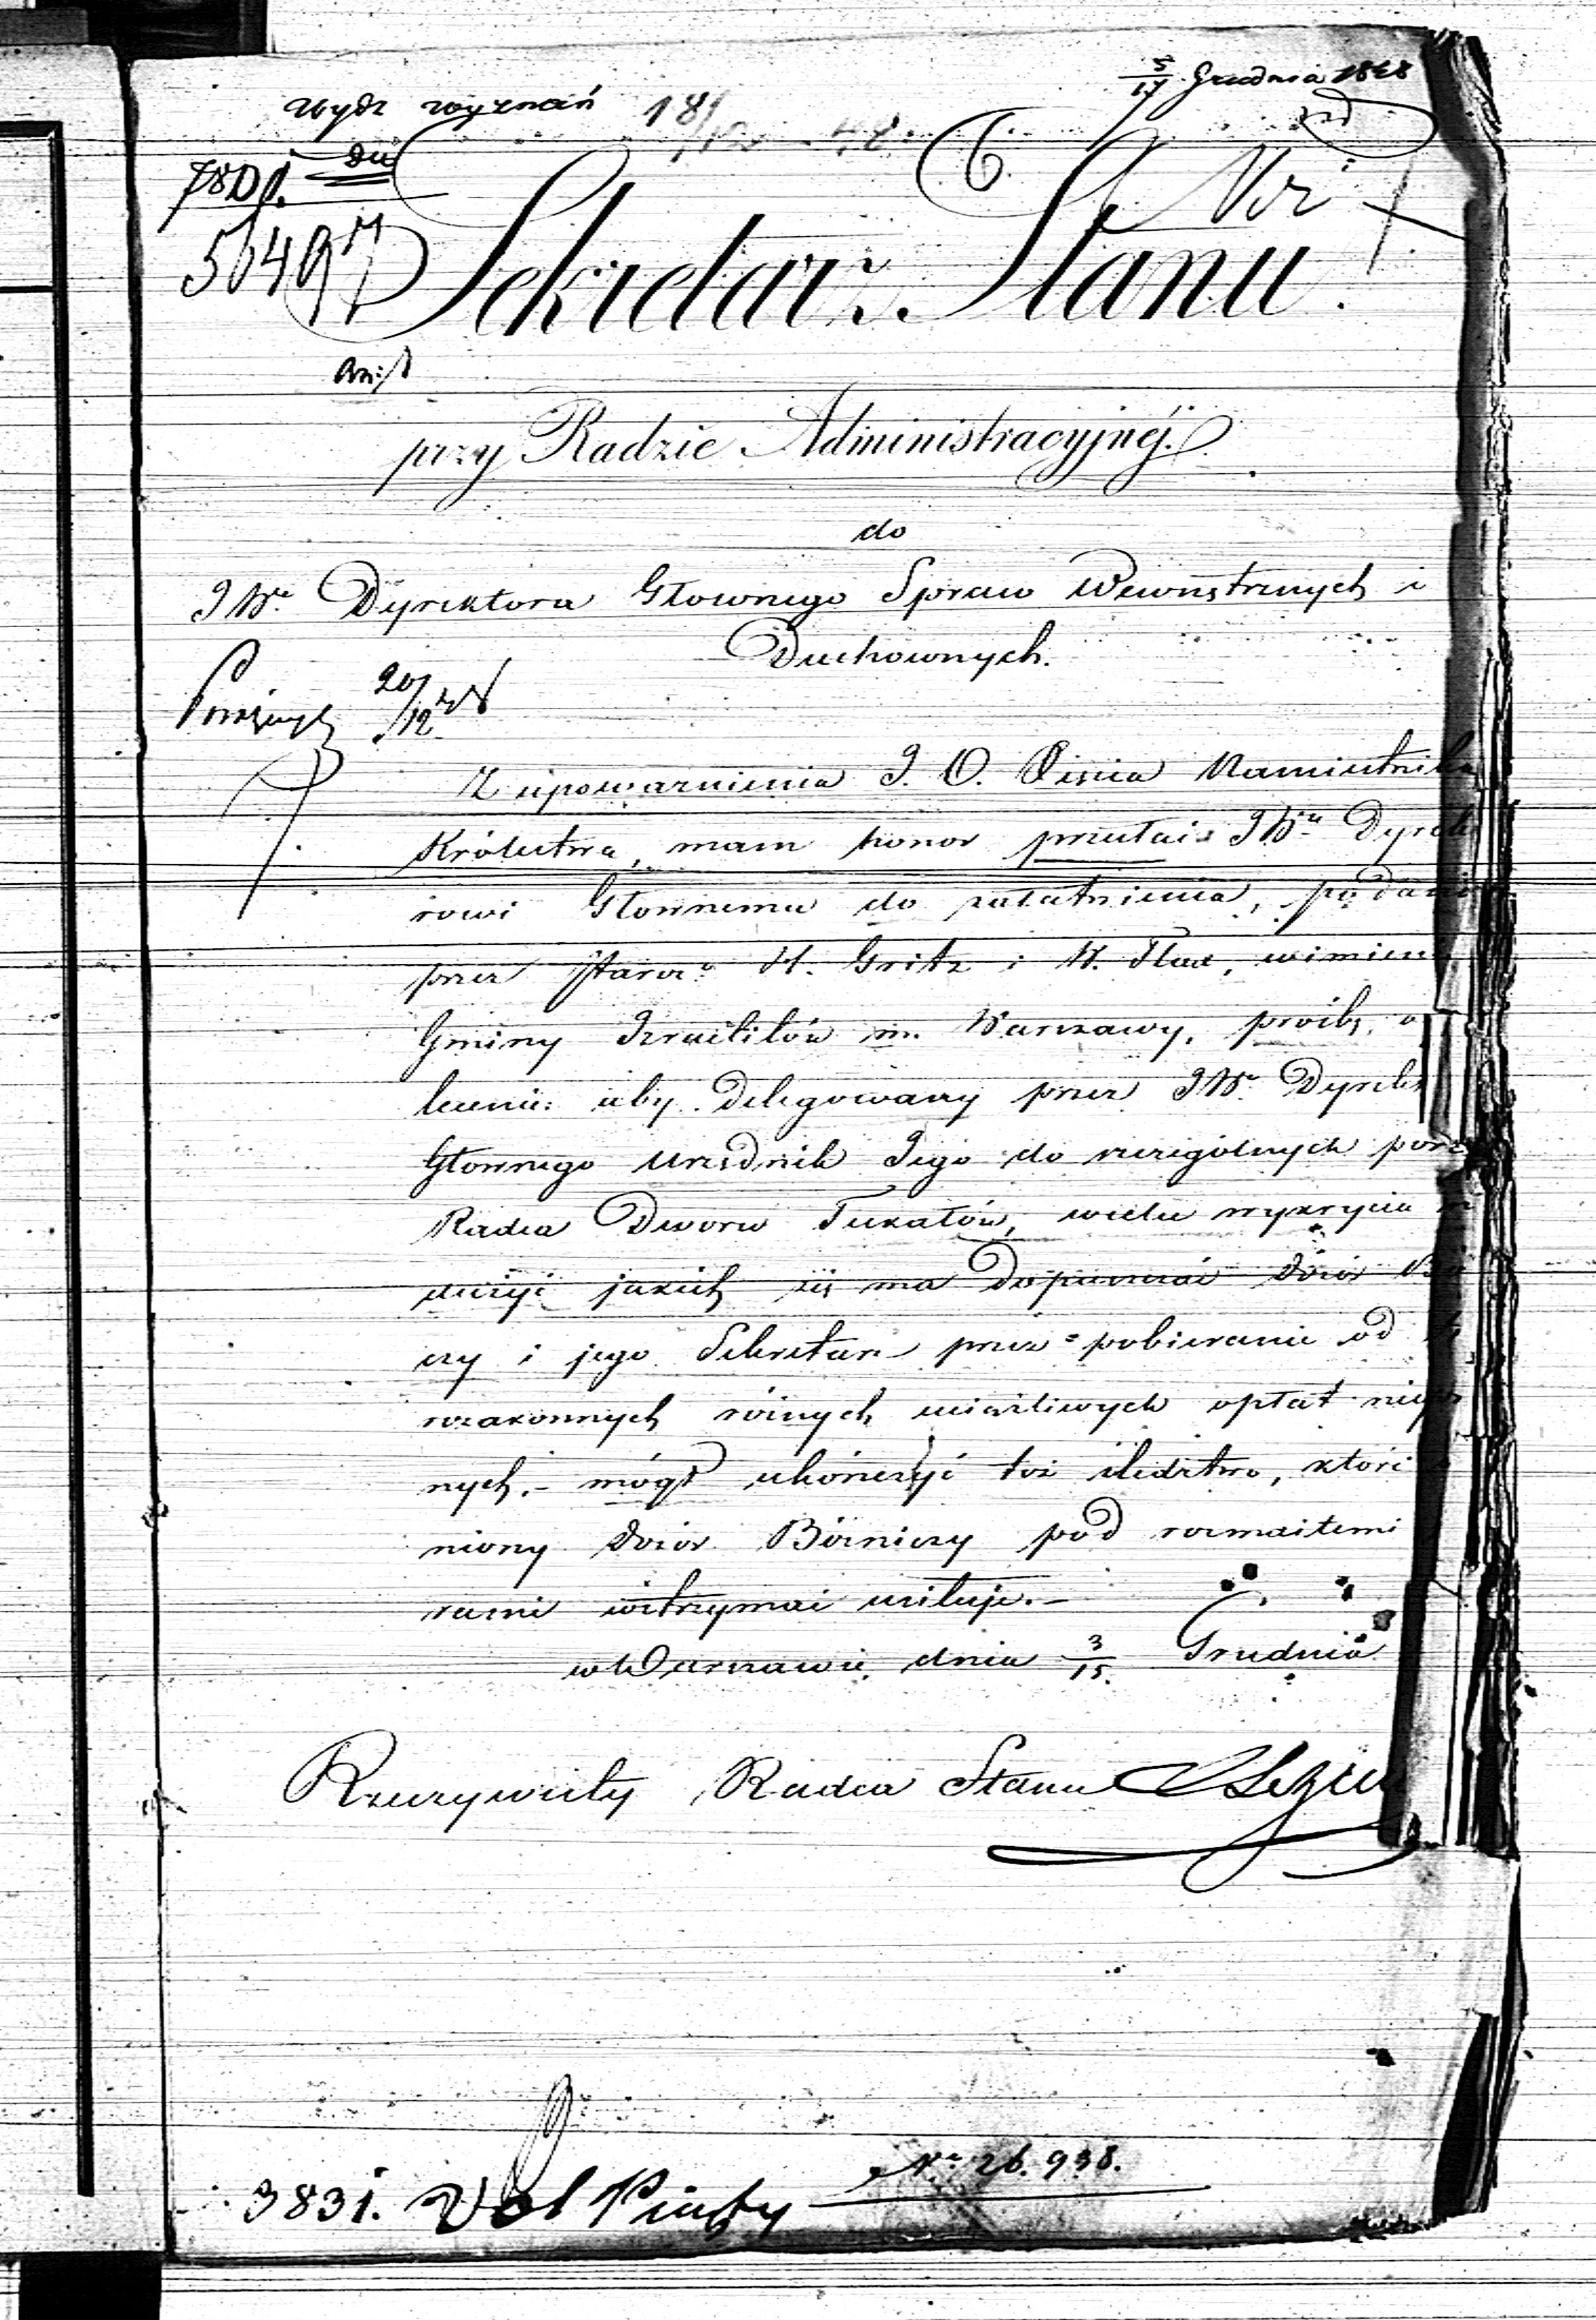 5/17 Grudnia 1848
Wydz wyznań 18/12 48.
56497
Sekretarz Stanu
przy Radzie Administracyjnéj.
do
JWo Dyrektora Głownego Spraw Wewnętrznych i
Duchownych.
20/12
Z upoważnienia J. O. Xięcia Namiestnika
Królestwa, mam honor przesłać JWu Dyrek
rowi Głownemu do załatwienia, podani
przez Starz: H. Gritz i W. Flax, w imieni
Gminy Izraelitów m. Warszawy, proźbę, o
lecenie: aby delegowany przez JWo Dyrek
Głownego Urzędnik Jego do szczególnych por
Radca Dworu Tukałów, w celu wykrycia
użyć jakich się ma dopuszczać Dozór Bó
czy i jego Sekretarz przez pobieranie od
rozakonnych róźnych uciążliwych opłat
nych, mógł ukończyć toż śledztwo, które
niony Dozór Bóżniczy pod rozmaitemi
rami wstrzymać usiłuje.
w Warszawie dnia 3/15 Grudnia
Rzeczywisty Radca Stanu
No 26.938.
3831. Vol Piąty